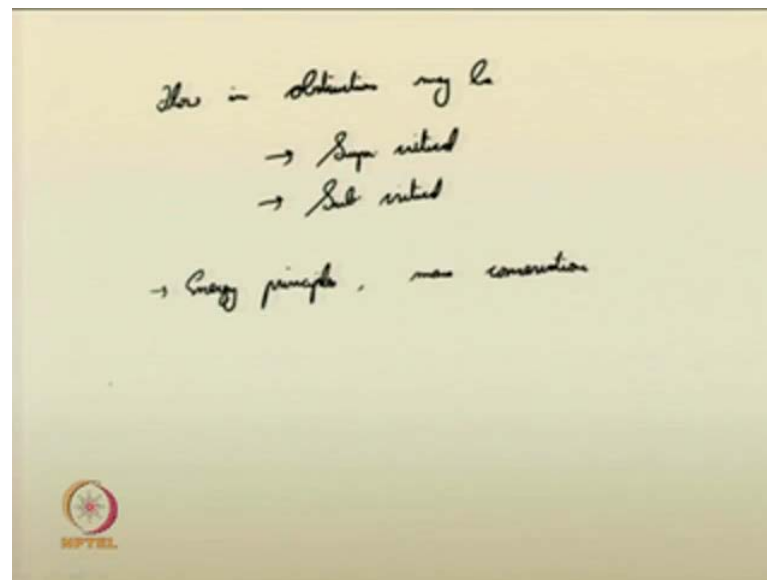 Flow in obstruction may be
→ Super critical
→ Sub critical
→ Energy principles, mass conservation
NPTEL